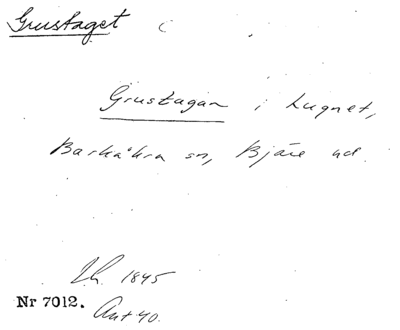 Grustaget
Grustagan i Lugnet,
Barkåkra sn, Bjäre hd.
Th. 1845
Nr 7012. Ant 40.